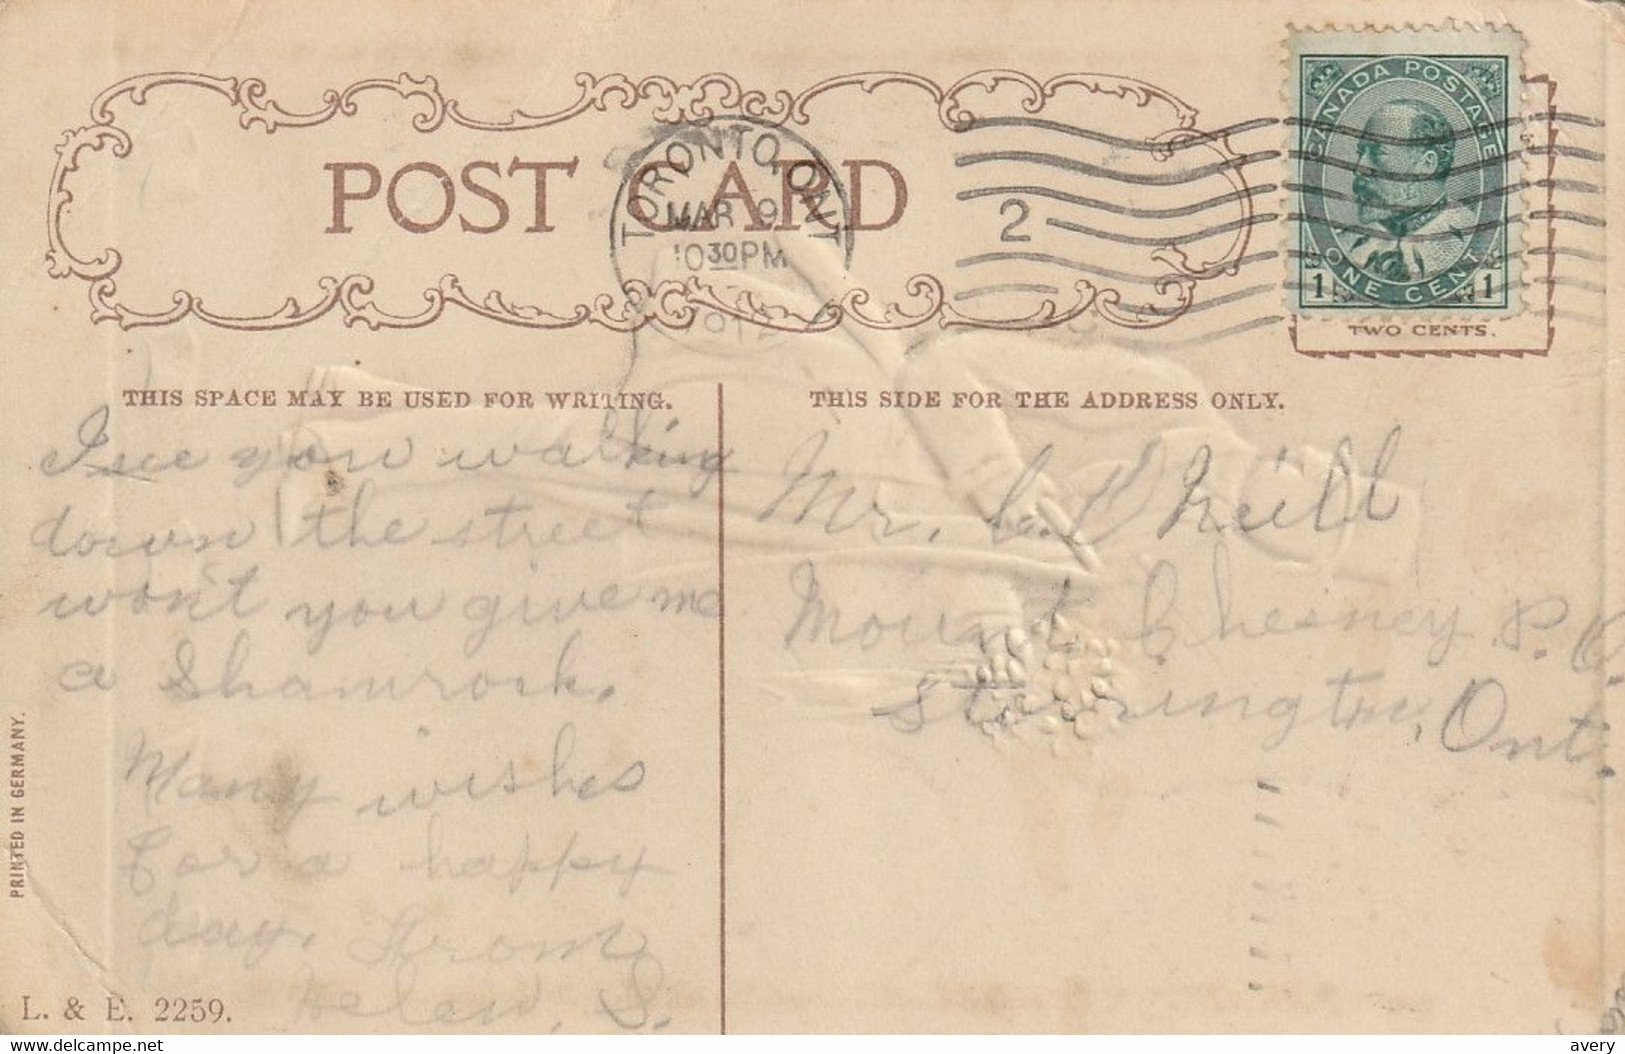 CANADA POSTAGE
1 ONE CENT 1
TWO CENTS.
POST CARD
TORONTO, ONT
MAR 9
10 30 PM
1912
2
THIS SPACE MAY BE USED FOR WRITING.
I see you walking
down the street
won't you give me
a Shamrock.
Many wishes
for a happy
day. From
Helen. S.
THIS SIDE FOR THE ADDRESS ONLY.
Mr. C. O'Neill
Mount Chesney P. O.
Storrington, Ont.
PRINTED IN GERMANY.
L. & E. 2259.
delcampe.net
avery